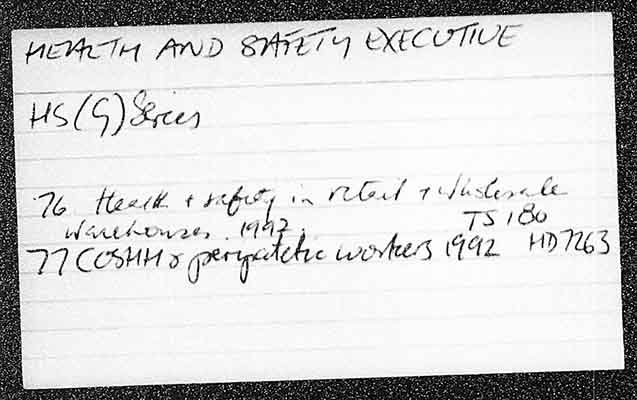 HEALTH AND SAFETY EXECUTIVE
HS(G) Series
76 Health + safety in retail + wholesale
warehouses. 1992. TS 180
77 COSHH & peripatetic workers 1992 HD7263